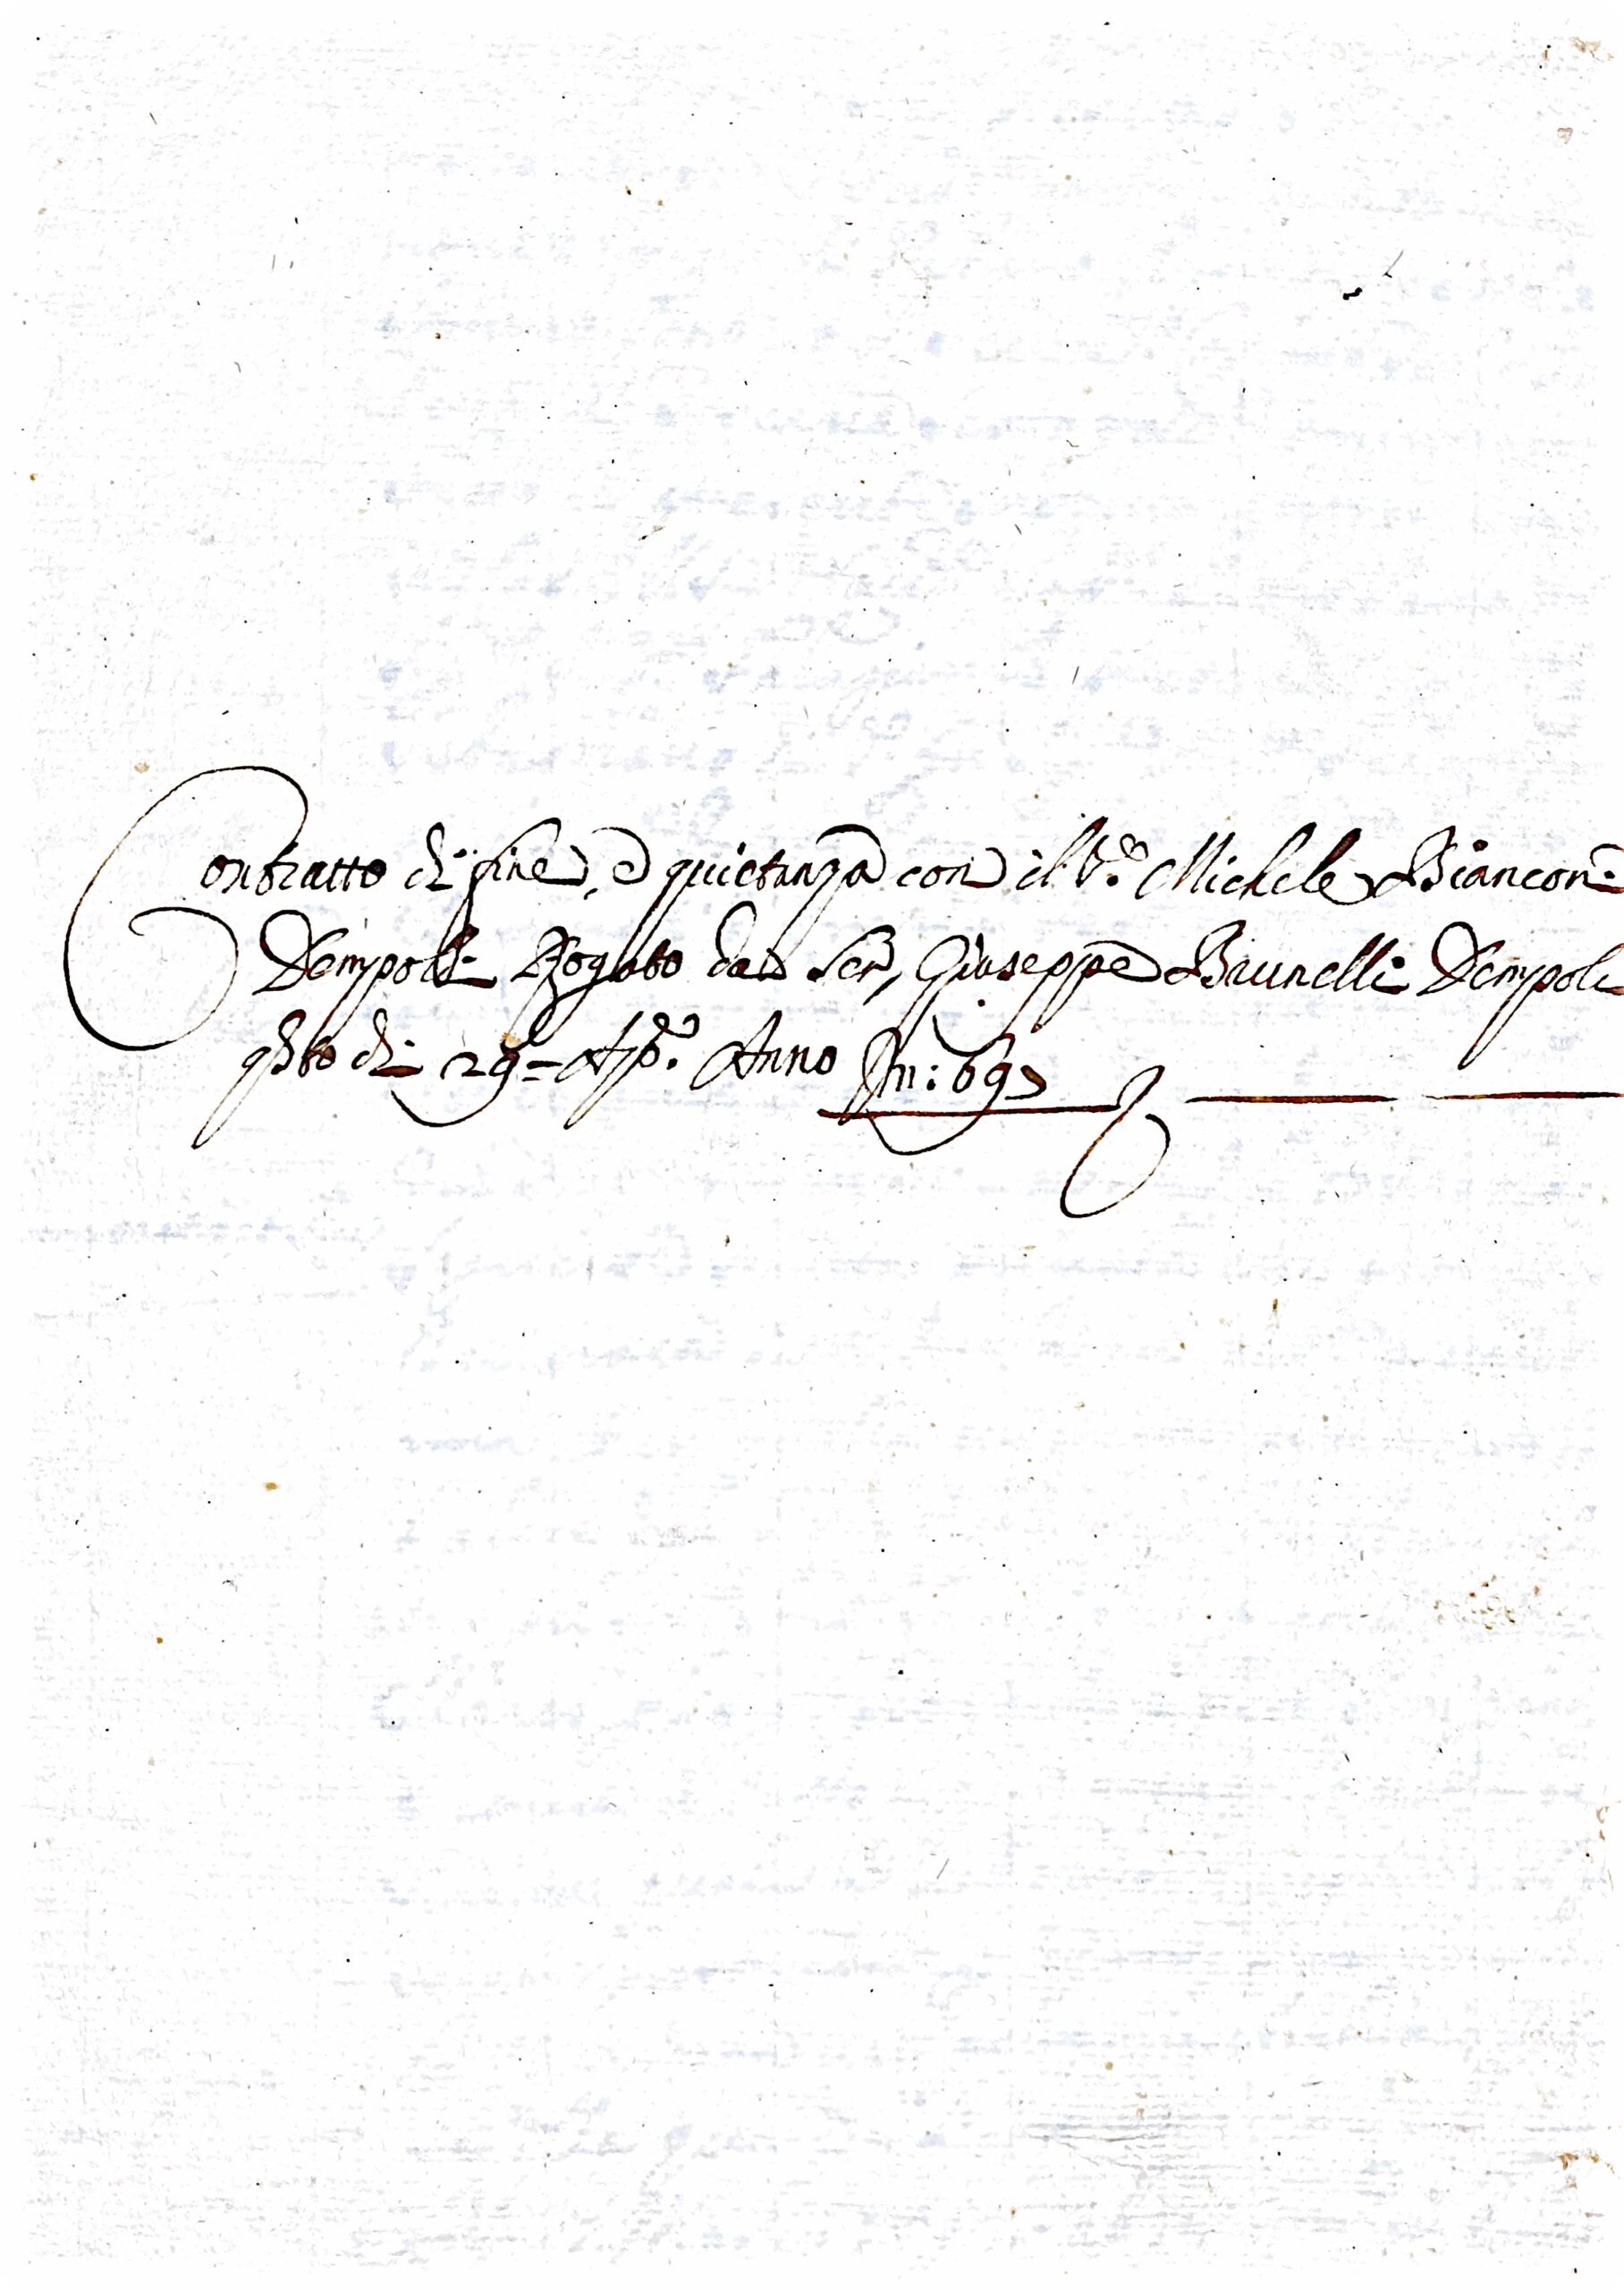 Contratto di fine, e quietanza con il Sr. Michele Bianconi
D'empoli Rogato da Ser, Giuseppe Brunelli D'empoli
qsto dì 29 = Apo. Anno m: 697